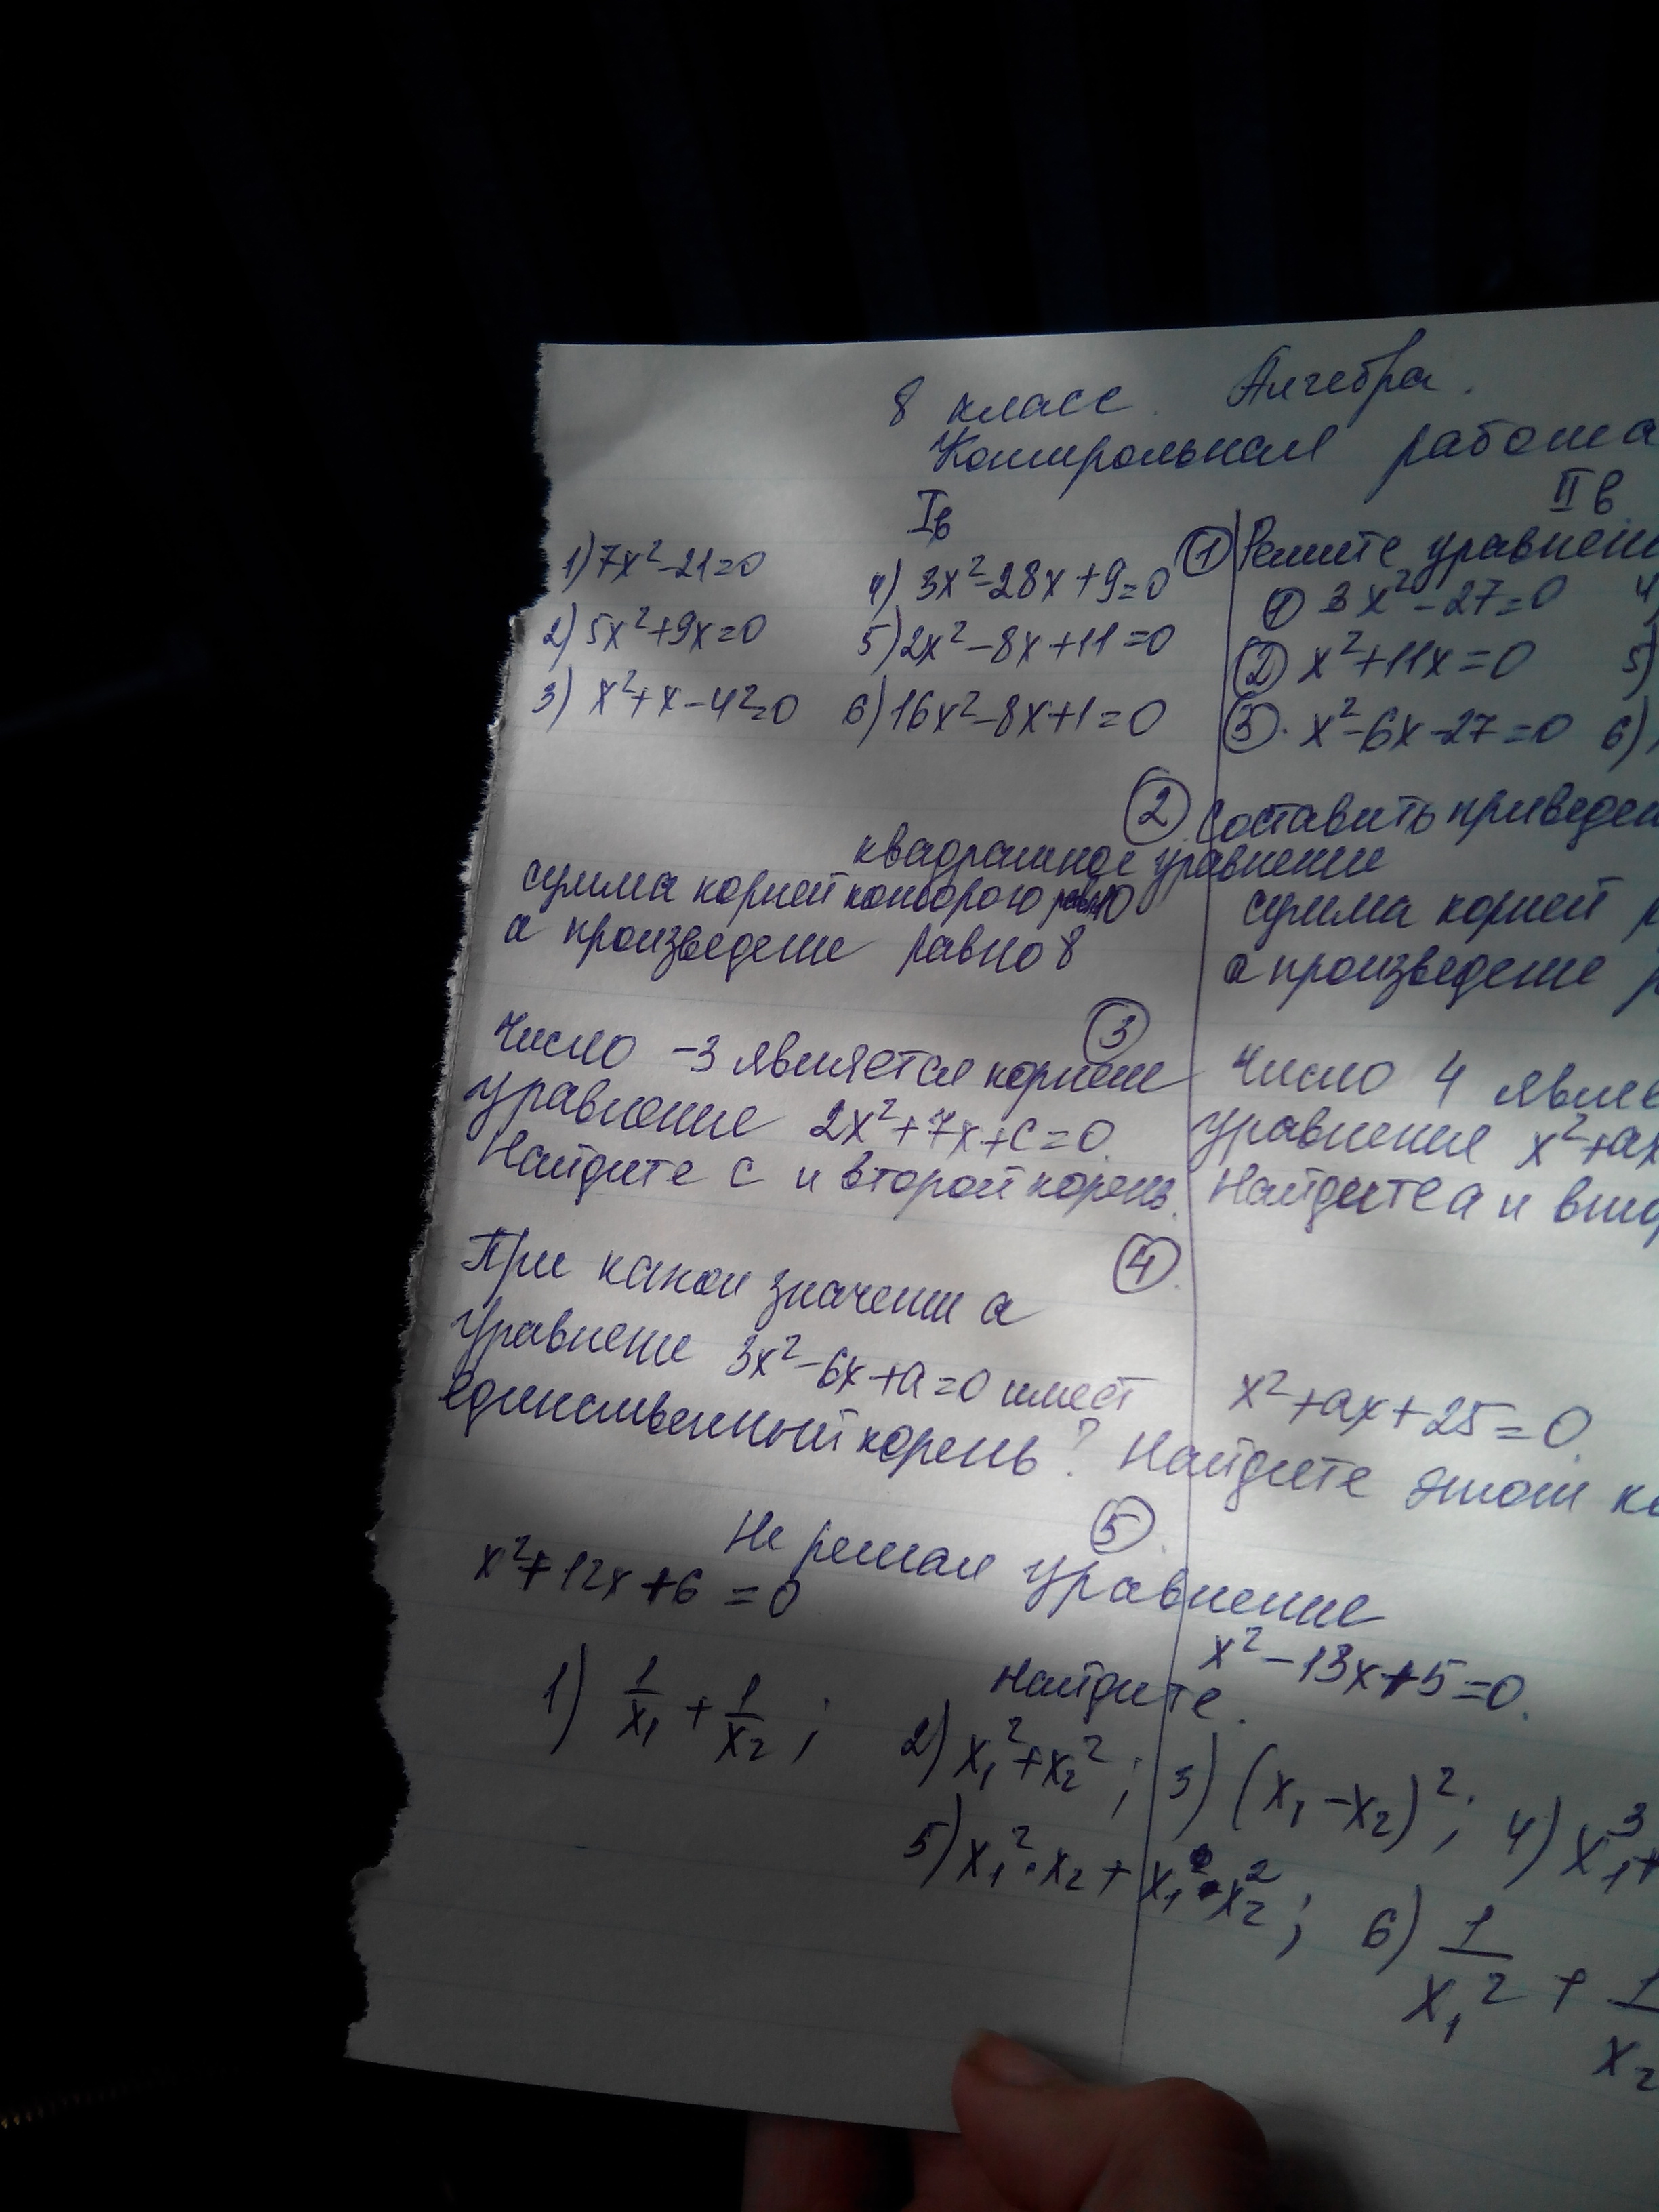 8 класс. Алгебра.
Контрольная работа
Iв
IIв
1) 7x²-21=0
4) 3x²-28x+9=0
2) 5x²+9x=0
5) 2x²-8x+11=0
3) x²+x-42=0
6) 16x²-8x+1=0
① Решите уравнен
① 3x²-27=0 4)
② x²+11x=0 5)
③ x²-6x-27=0 6)
② Составить приведен
квадратное уравнение
сумма корней которого равна 10
а произведение равно 8
сумма корней р
а произведение р
③
Число -3 является корнем
уравнение 2x²+7x+c=0.
Найдите c и второй корень.
Число 4 явле
уравнения x²+ax
Найдите a и втор
④
При каком значении a
уравнение 3x²-6x+a=0 имеет
единственный корень? Найдите этот ко
x²+ax+25=0.
⑤
Не решая уравнение
x²+12x+6=0
x²-13x+5=0.
Найдите.
1) 1/x₁ + 1/x₂; 2) x₁²+x₂²; 3) (x₁-x₂)²; 4) x₁³+
5) x₁²·x₂+x₁·x₂²; 6) 1/x₁² + 1/x₂